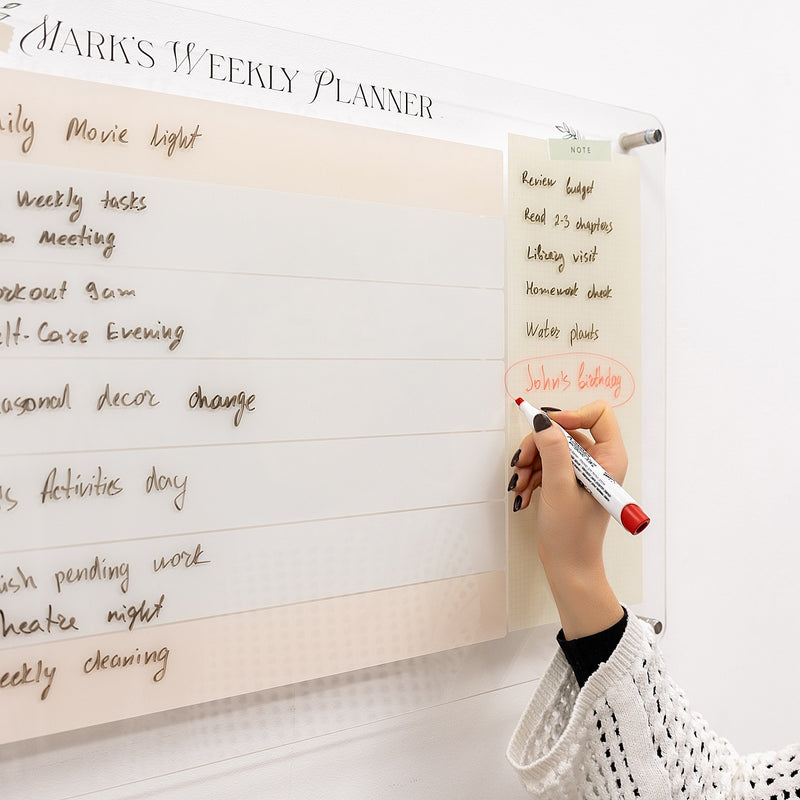 MARK'S WEEKLY PLANNER
Movie light
weekly tasks
Meeting
9am
Care Evening
decor change
Activities day
pending work
night
cleaning
NOTE
Review budget
Read 2-3 chapters
Library visit
Homework check
Water plants
John's birthday